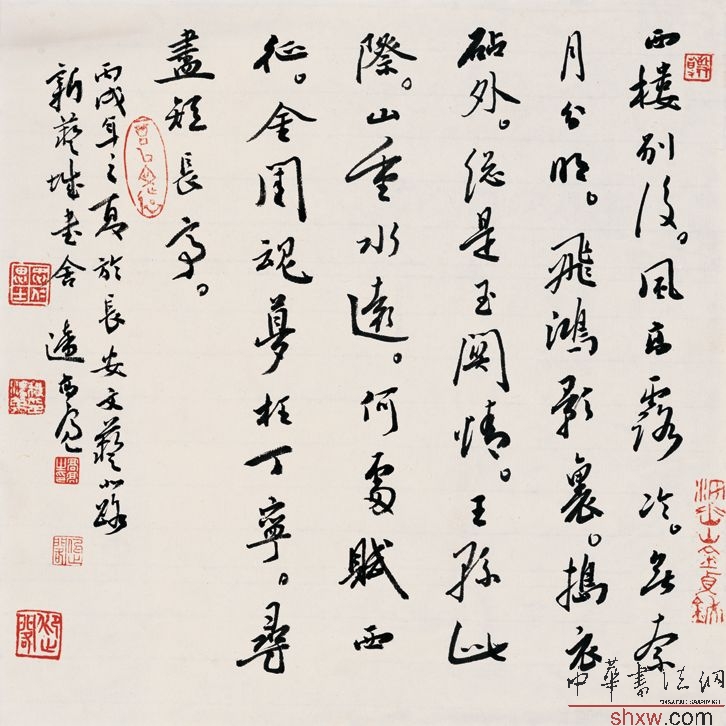 西樓别後。風高露冷。無奈
月分明。飛鴻影裏。搗衣
砧外。總是玉關情。王孫此
際。山重水遠。何處賦西
征。金閨魂夢枉丁寧。尋
盡短長亭。
丙戌年之夏於長安文藝北路
新藝城書舍
中華書法網
shxw.com